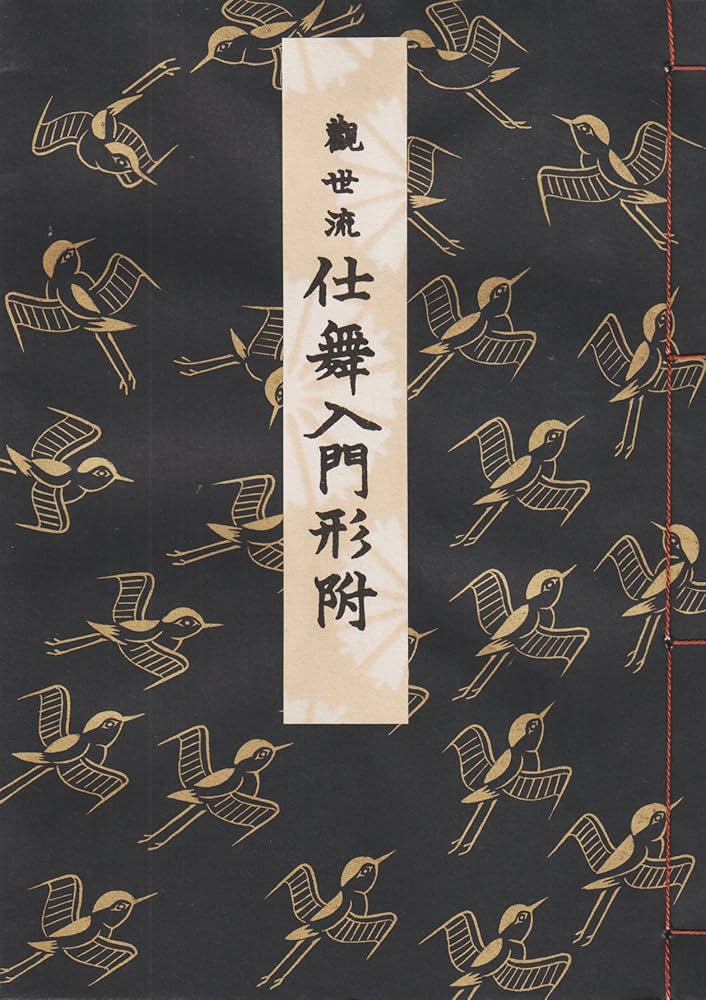 觀世流仕舞入門形附